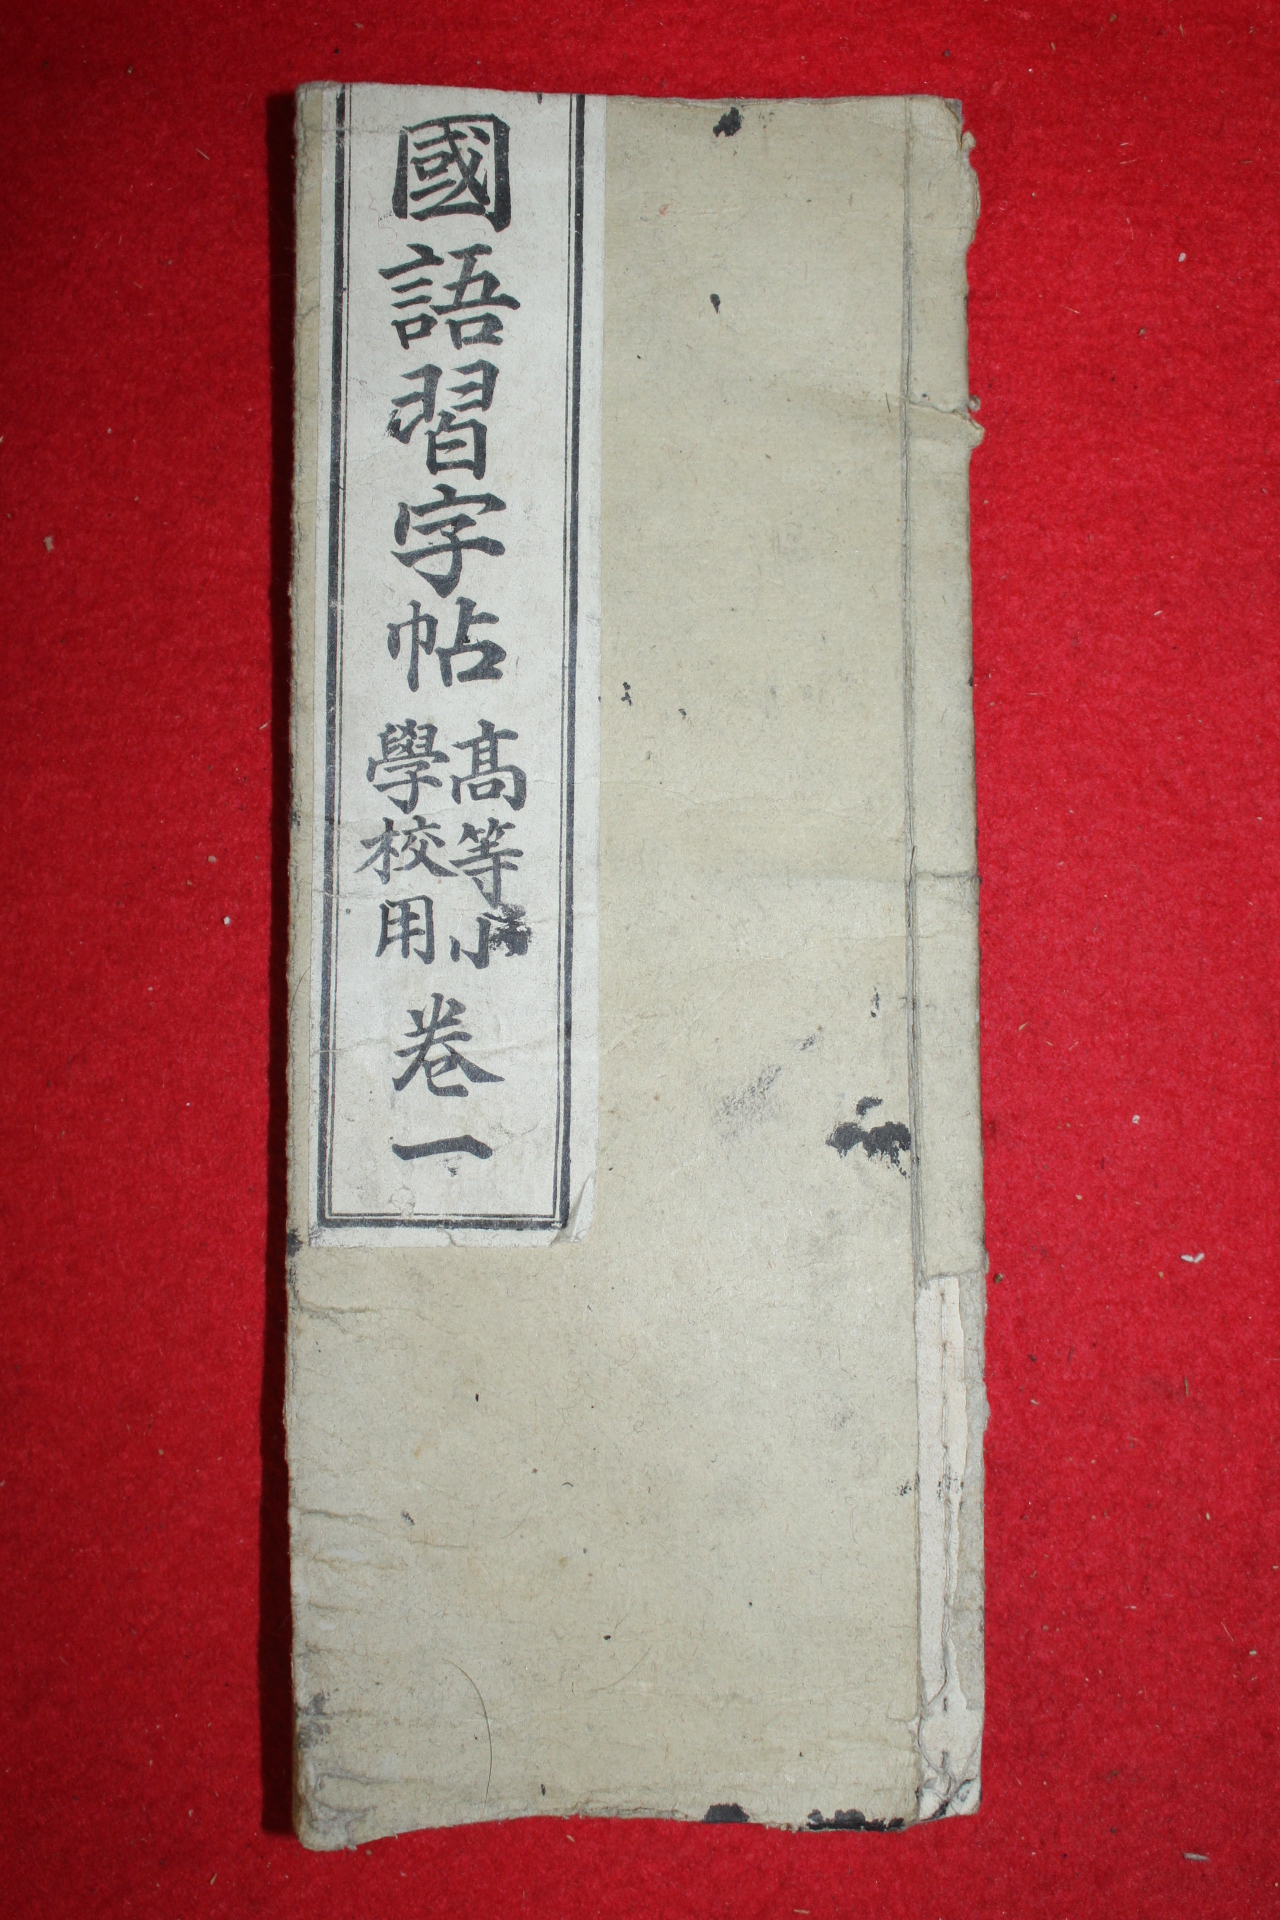 國語習字帖
髙等小
學校用
卷一